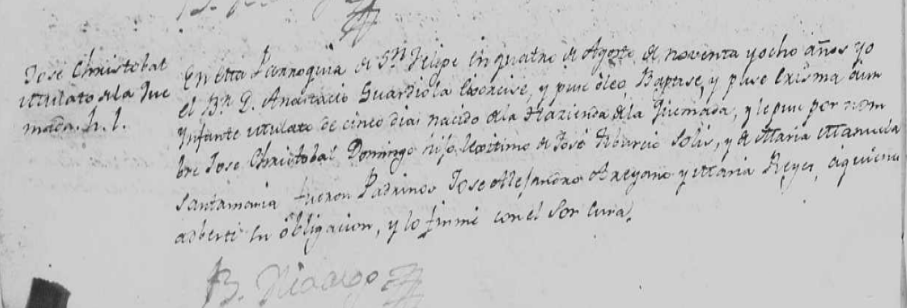 Jose Christobal
mulato de la Que
mada. h. l.
En esta Parroquia de Sn. Felipe en quatro de Agosto de noventa y ocho años yo
el Br. D. Anastacio Guardiola Exorcise, y puse oleo, Baptise, y puse Crisma à un
Ynfante mulato de cinco dias nacido de la Hazienda de la Quemada, y le puse por nom
bre Jose Christobal Domingo hijo lexitimo de José Tiburcio Solis, y de Maria Manuela
Santamaria fueron Padrinos Jose Alejandro Areyano y Maria Reyes, à quienes
adverti su obligacion, y lo firmé con el Sor. Cura.
B. Hidalgo